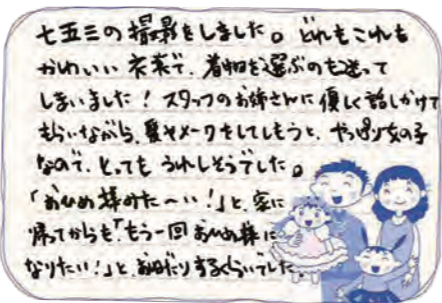 七五三の撮影をしました。どれもこれも
かわいい衣装で、着物を選ぶのも迷って
しまいました！スタッフのお姉さんに優しく話しかけて
もらいながら、髪やメークをしてもらうと、やっぱり女の子
なので、とってもうれしそうでした。
「おひめ様みた〜い！」と、家に
帰ってからも「もう一回おひめ様に
なりたい！」と、おねだりするくらいでした。